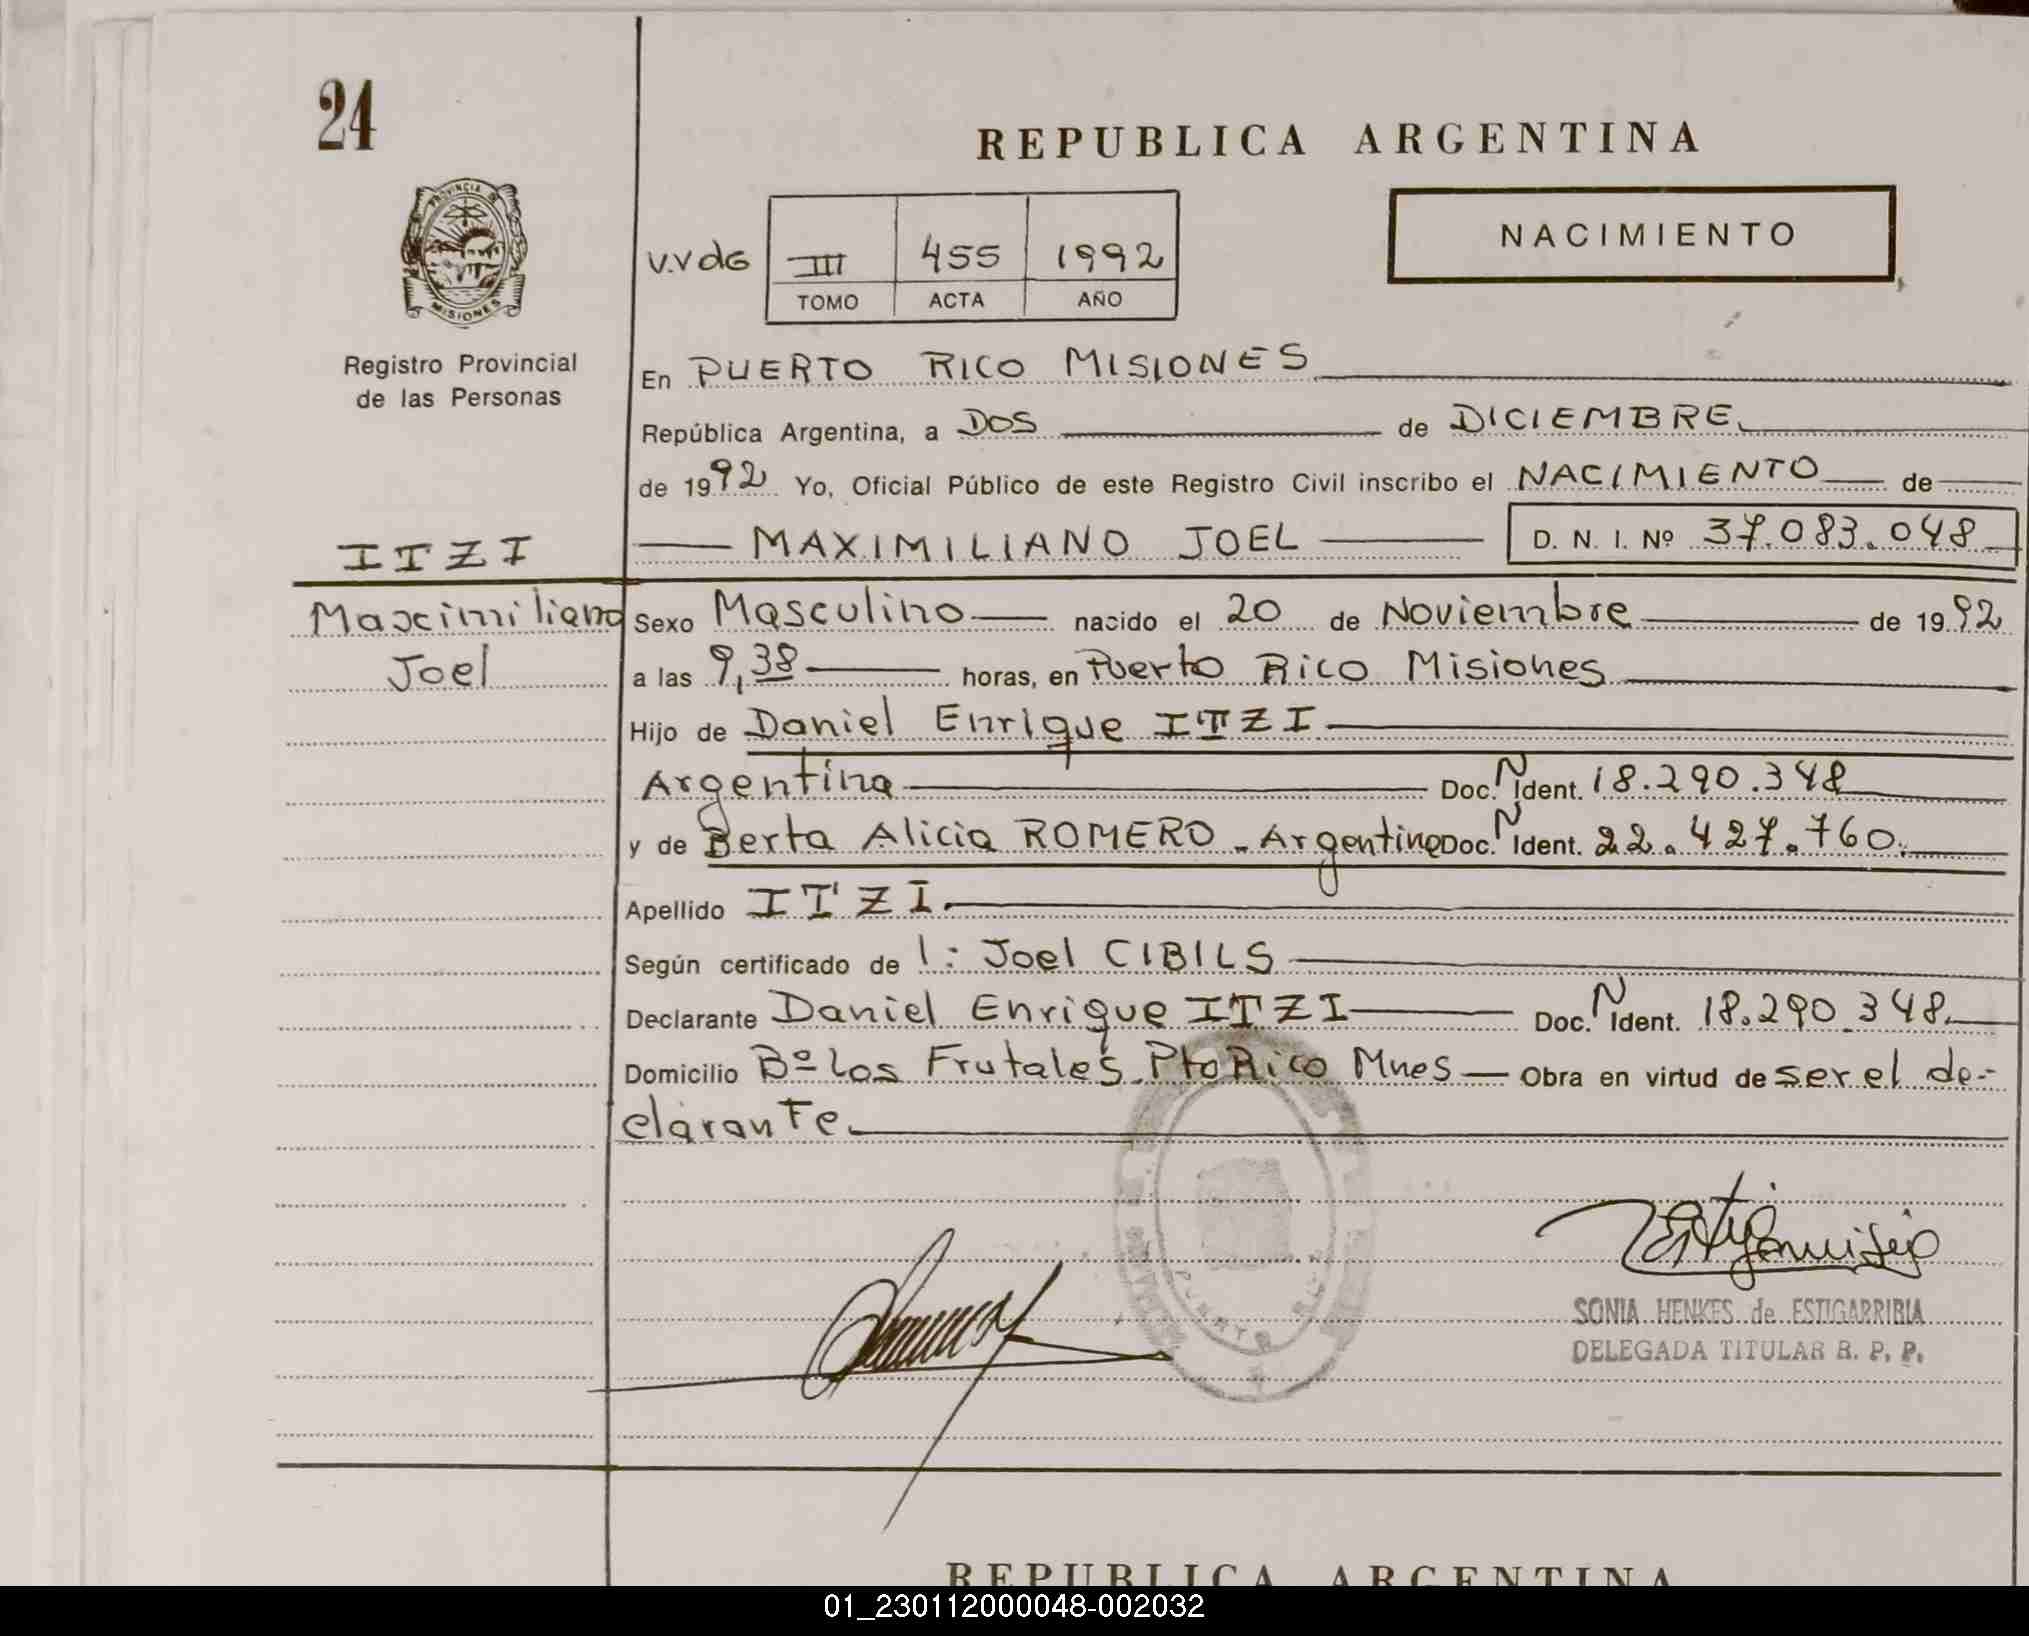 24
REPUBLICA ARGENTINA
PROVINCIA DE
MISIONES
NACIMIENTO
V.V de
III 455 1992
TOMO ACTA AÑO
Registro Provincial
de las Personas
En PUERTO RICO MISIONES
República Argentina, a DOS de DICIEMBRE
de 1992 Yo, Oficial Público de este Registro Civil inscribo el NACIMIENTO de
MAXIMILIANO JOEL D. N. I. Nº 37.083.048
ITZI
Maximiliano
Joel
Sexo Masculino nacido el 20 de Noviembre de 1992
a las 9,38 horas, en Puerto Rico Misiones
Hijo de Daniel Enrique ITZI
Argentina Doc. N Ident. 18.290.348
y de Berta Alicia ROMERO. Argentina Doc. N Ident. 22.427.760.
Apellido ITZI.
Según certificado de 1: Joel CIBILS
Declarante Daniel Enrique ITZI Doc. N Ident. 18.290.348.
Domicilio Bº Los Frutales. Pto Rico Mnes Obra en virtud de ser el de-
clarante.
PUERTO RICO
SONIA HENKES de ESTIGARRIBIA
DELEGADA TITULAR R. P. P.
REPUBLICA ARGENTINA
01_230112000048-002032